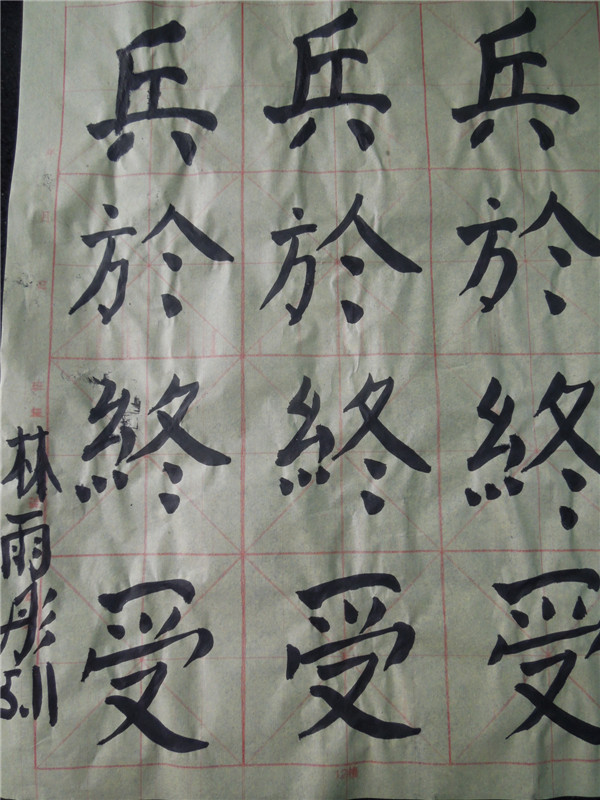 兵於終受
兵於終受
兵於終受
林雨彤5.11